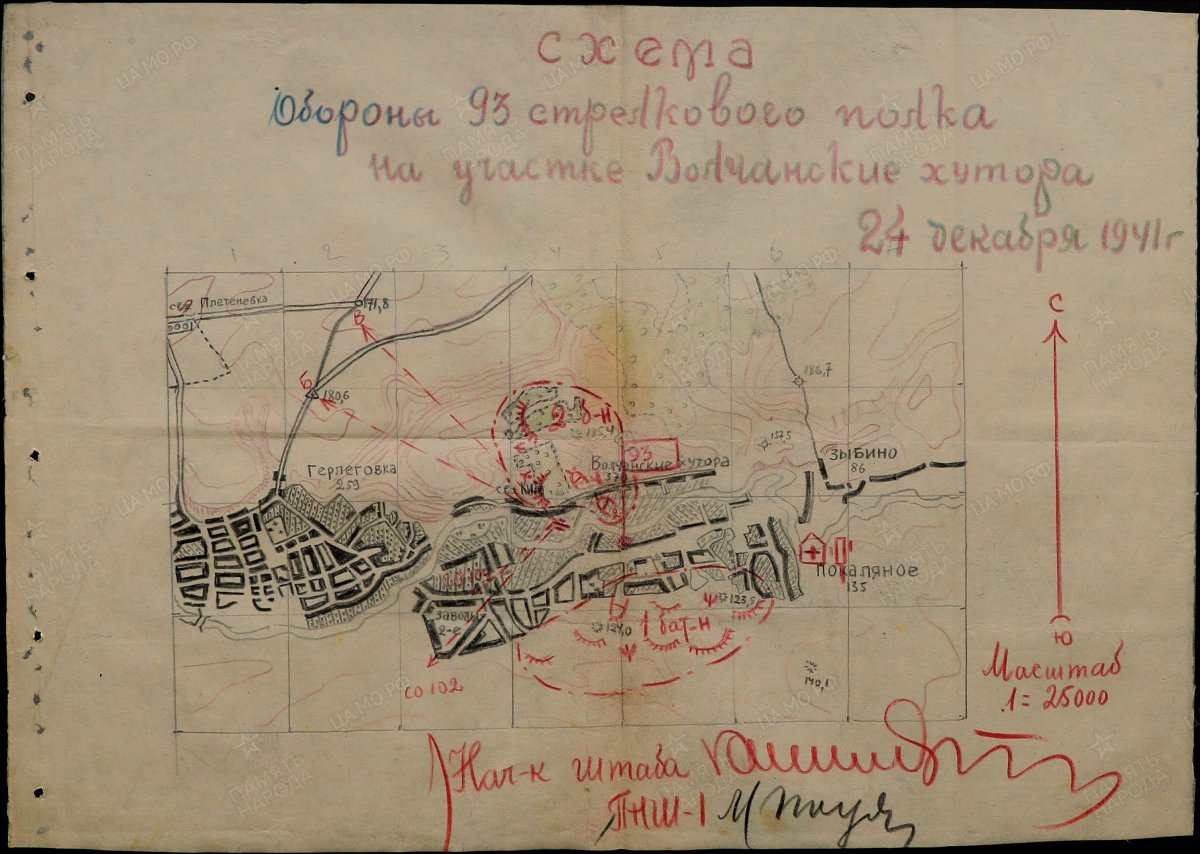 схема
Обороны 93 стрелкового полка
на участке Волчанские хутора
24 декабря 1941г
1 2 3 4 5 6
свх Плетеневка
171,8
В
Б
180,6
186,7
2 б-н
185,4
157,5
93
Волчанские хутора
370
ЗЫБИНО
86
Герлеговка
259
ПОКАЛЯНОЕ
135
Заводы
2-е
123,5
124,0
1 бат-н
140,1
СО 102
С
Ю
Масштаб
1 = 25000
Нач-к штаба
ПНШ-1
ПАМЯТЬ НАРОДА
ЦА МО РФ